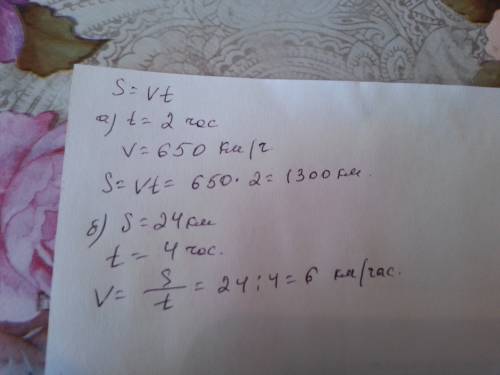 S = Vt
а) t = 2 час
V = 650 км/ч.
S = Vt = 650 · 2 = 1300 км.
б) S = 24 км
t = 4 час.
V = S/t = 24 : 4 = 6 км/час.